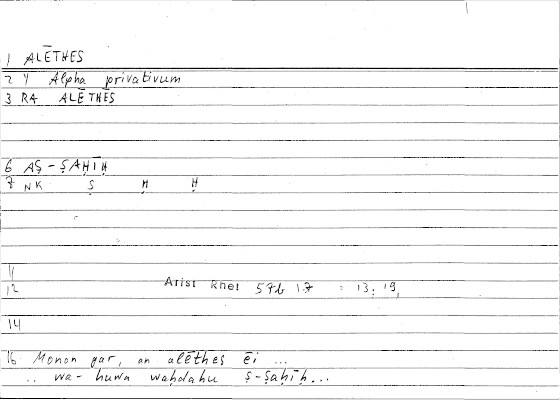 1 ALĒTHES
2 Y Alpha privativum
3 RA ALĒTHES
6 AṢ-ṢAḤĪḤ
7 NK Ṣ Ḥ Ḥ
11
12 Arist Rhet 57b 17 : 13, 19,
14
16 Monon gar, an alēthes ēi ...
.. wa-huwa waḥdahu ṣ-ṣaḥīḥ...